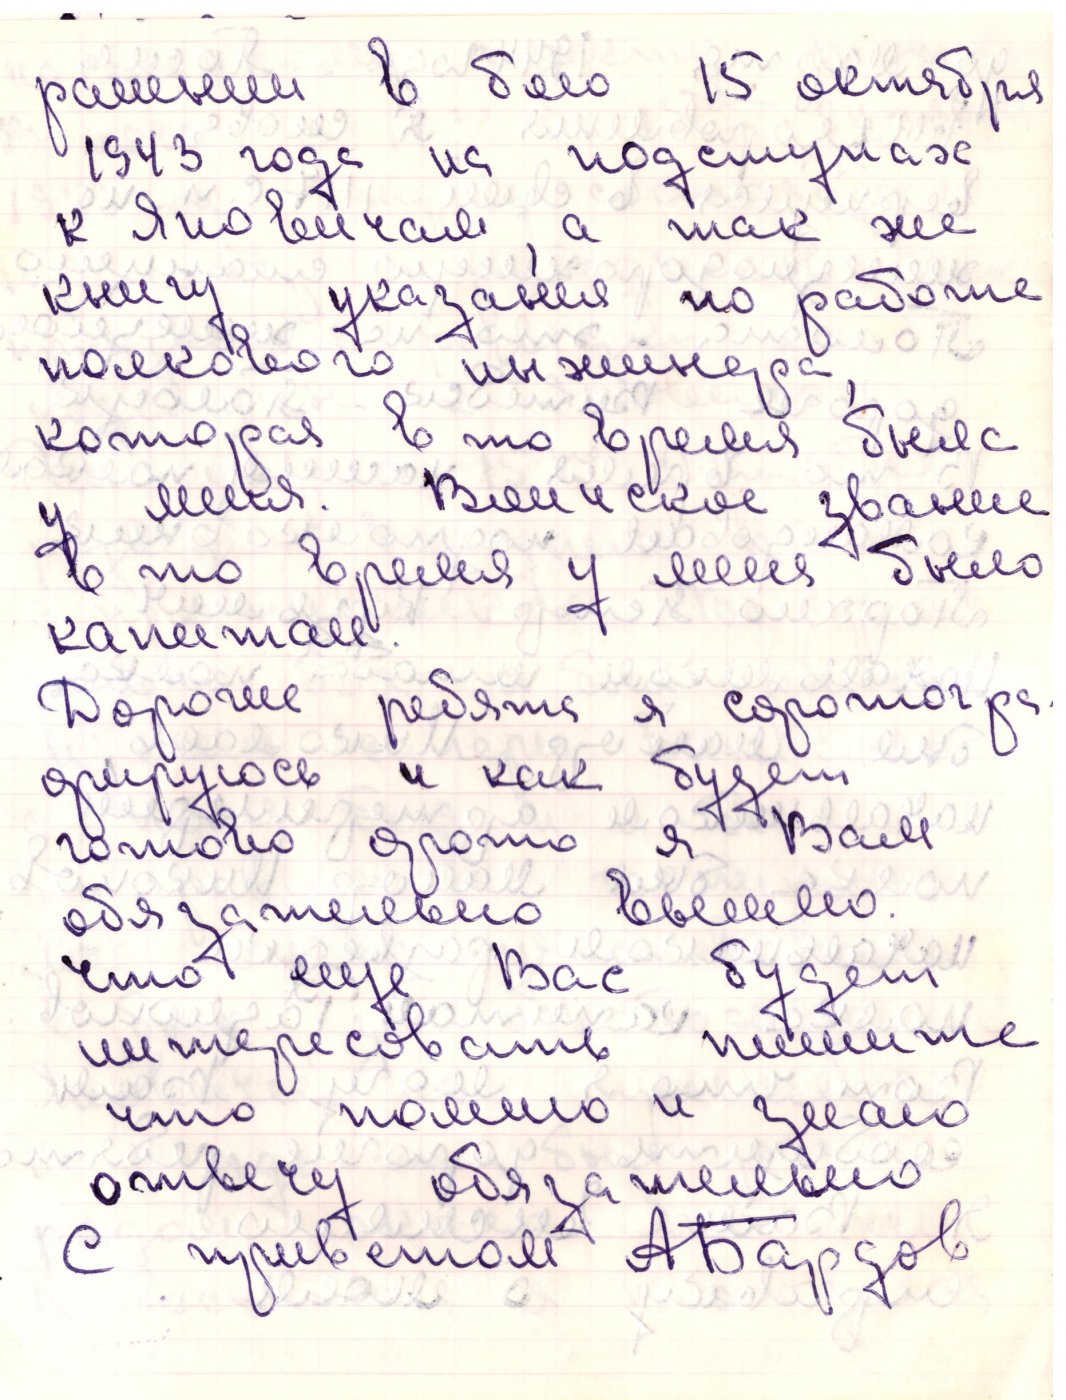 раненым в бою 15 октября
1943 года на подступах
к Яновичам, а так же
книгу указания по работе
полкового инженера,
которая в то время была
у меня. Воинское звание
в то время у меня было
капитан.
Дорогие ребята я сфотогра-
фируюсь и как будет
готово фото я Вам
обязательно вышлю.
что еще Вас будет
интересовать пишите
что помню и знаю
отвечу обязательно
С приветом АБардов